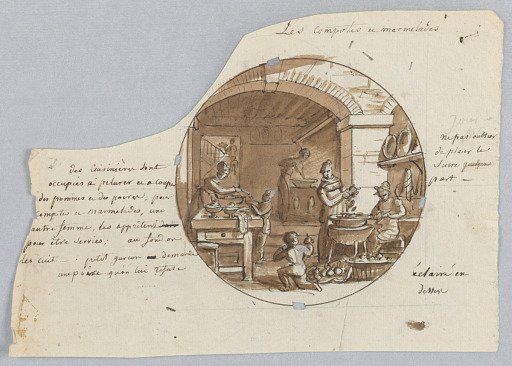 Les compotes et marmelades
des Cuisinières sont
occupées a pelurer et a couper
des pommes et des poires, pour
compotes et marmelades, une
autre femme, les apprêtent
pour être servies; au fond on
les cuit — petit garcon demande
une poire quon lui refuse
ne pas oublier
de placer le
sucre quelque
part —
éclairé en
dessus